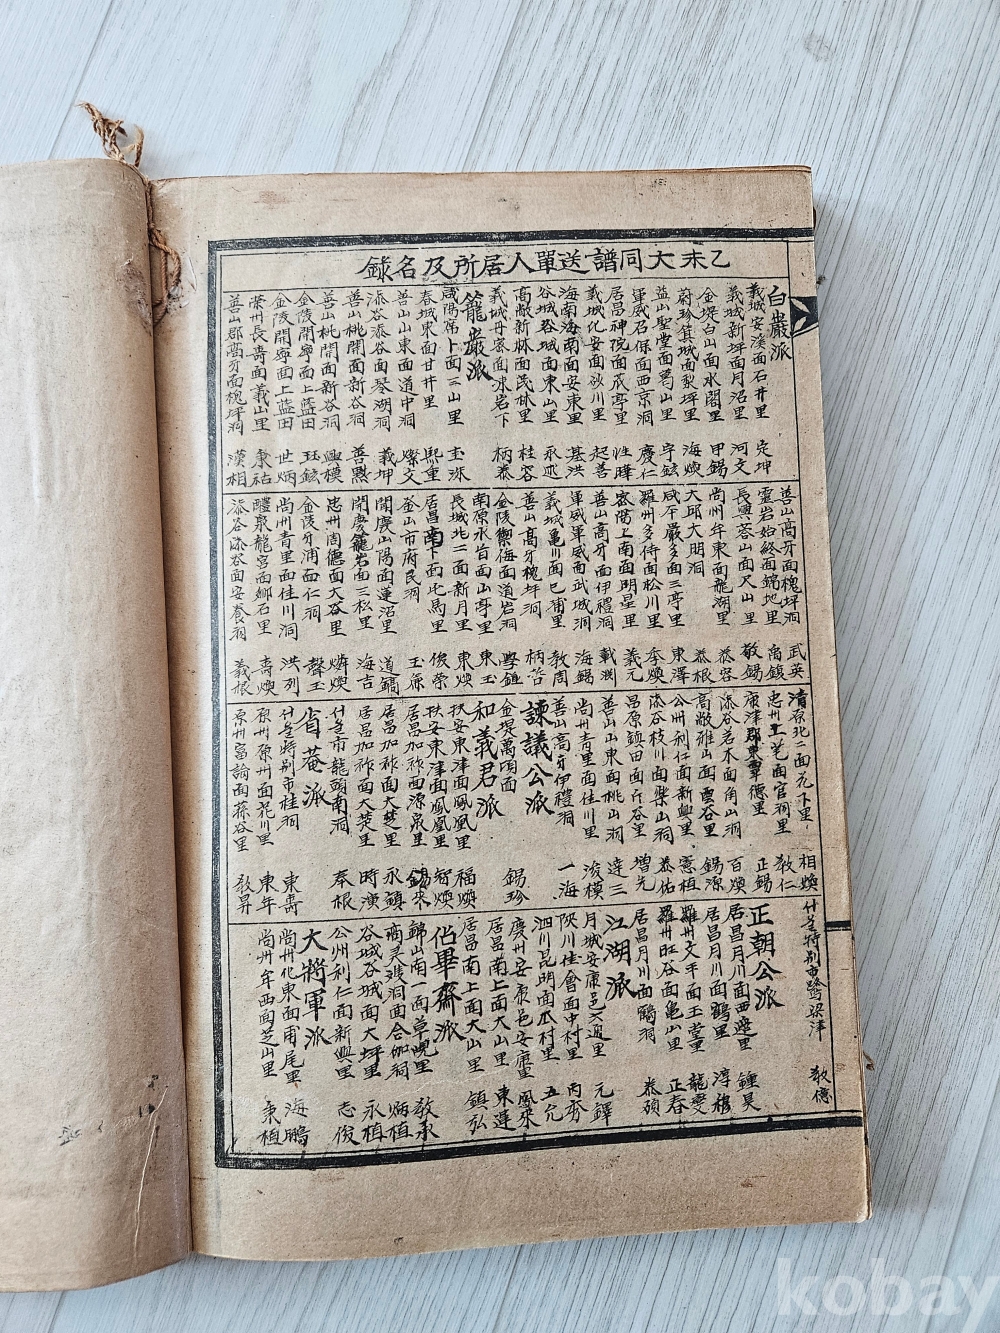 乙未大同譜送單人居所及名錄
白巖派
義城安溪面石井里 定坤
義城新坪面月沼里 河文
金堤白山面水閣里 甲錫
蔚珍箕城面梨坪里 海煥
益山聖堂面葛山里 宇鉉
軍威召保面西京洞 慶仁
居昌神院面茂亭里 性暐
義城化安面砂川里 起善
海南海南面安東里 基洪
谷城谷城面東山里 永烋
高敞新林面民林里 桂容
義城丹密面氷岩下 炳泰
籠巖派
咸陽席卜面三山里
春城東面甘井里 熙重
善山山東面道中洞 燦文
漆谷漆谷面琴湖洞 義坤
善山桃開面新谷洞 善熙
善山桃開面新谷洞 興模
金陵開寧面上藍田 珏鉉
金陵開寧面上藍田 世炳
榮州長壽面義山里 東祐
善山郡高牙面槐坪洞 漢相
善山高牙面槐坪洞 武英
靈岩始終面錦地里 尚鎮
長興蓉山面尺山里 敬錫
尚州牟東面龍湖里 泰容
大邱大明洞 泰根
咸平嚴多面三亭里 東澤
羅州多侍面松川里 季煥
密陽上南面明星里 義元
善山高牙面伊禮洞 載淵
軍威軍威面武城洞 海錫
義城龜川面已甫里 敦周
善山高牙槐坪洞 炳苦
金陵禦侮面道岩洞 學鎮
南原水旨面山亭里 東玉
長城北二面新月里 東煥
居昌南下面屯馬里 俊榮
釜山市府民洞 玉原
聞慶山陽面蓮沼里 道鎬
聞慶籠岩面三松里 海吉
忠州周德面大谷里 燐煥
金陵牙浦面仁洞 聲玉
尚州青里面佳川洞 洪列
醴泉龍宮面鄉石里 壽煥
漆谷漆谷面安養洞 義根
清原北二面花下里 相煥
忠州工芼面官洞里 敦仁
康津郡東覃德里 正錫
漆谷若木面角山洞 百煥
高敞雅山面雲谷里 錫源
公州利仁面新興里 憲植
漆谷枝川面樂山洞 泰佑
昌原鎮田面斤谷里 增元
善山山東面桃山洞 達三
尚州青里面佳川里 浚模
善山高牙伊禮洞 一海
諫議公派
金堤萬頃面 錫珍
和義君派
扶安東津面鳳凰里 福煥
扶安東津面鳳凰里 智煥
居昌加祚西源泉里 錫來
居昌加祚面大楚里 永鎮
居昌加祚面大楚里 時漢
서울市龍頭南洞 奉根
省菴派
서울特別市桂洞 東壽
原州原州面花川里 東年
原州富論面蓀谷里 敦昇
서울特別市鷺梁津 敦億
正朝公派
居昌月川面西邊里 鍾昊
居昌月川面鶴里 淳穆
羅州文平面玉堂里 龍雯
羅州旺谷面龜山里 正春
居昌月川面鶴洞 泰碩
江湖派
月城安康邑六通里 元鐸
陜川佳會面中村里 丙秀
泗川昆明面瓜村里 五允
慶州安康邑安康里 鳳來
居昌南上面大山里 東運
居昌南上面大山里 鎮弘
佔畢齋派
錦山南一面草峴里 敦承
高灵双洞面合伽洞 炳植
谷城谷城面大坪里 永植
公州利仁面新興里 志俊
大將軍派
尚州化東面甫尾里 海鵬
尚州牟西面芝山里 秉植
kobay